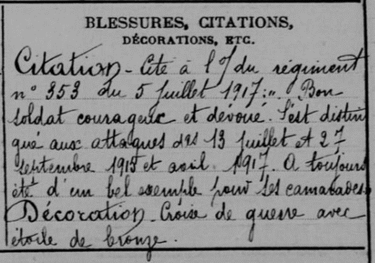 BLESSURES, CITATIONS,
DÉCORATIONS, ETC.
Citation - Cité à l'O/ du régiment
n° 353 du 5 juillet 1917: " Bon
soldat courageux et dévoué. S'est distin
gué aux attaques des 13 juillet et 27
septembre 1915 et avril 1917. A toujours
été d'un bel exemple pour ses camarades
Décoration - Croise de guerre avec
étoile de bronze.